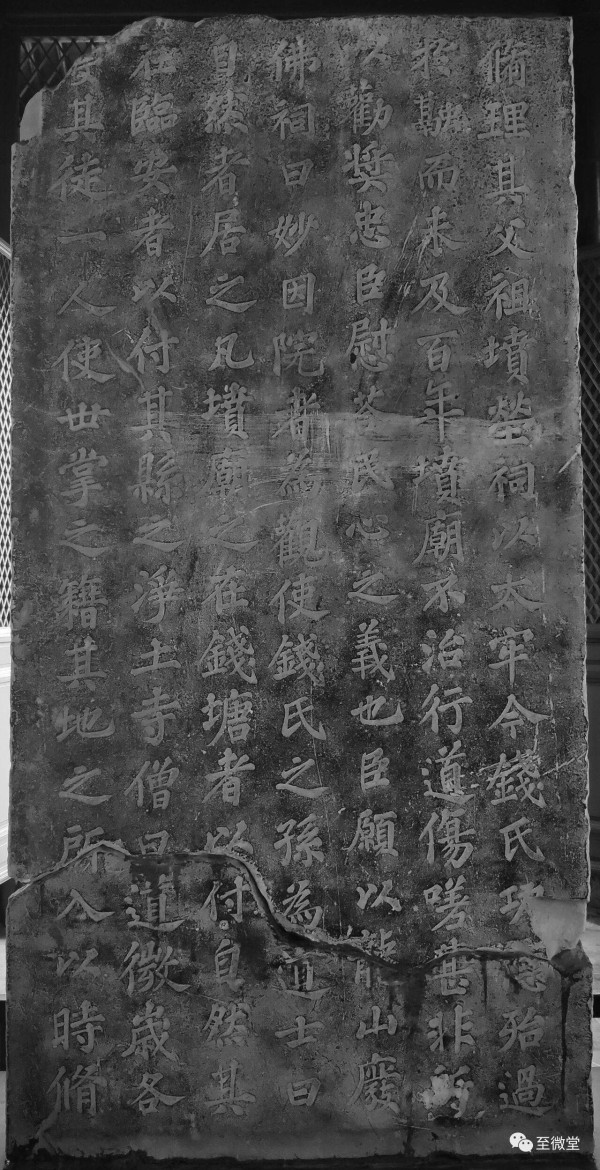 脩理其父祖墳塋祠以太牢今錢氏功德殆過
於融而未及百年墳廟不治行道傷嗟甚非所
以勸奬忠臣慰荅民心之義也臣願以龍山廢
佛祠曰妙因院者為觀使錢氏之孫為道士曰
自然者居之凡墳廟之在錢塘者以付自然其
在臨安者以付其縣之淨土寺僧曰道微歲各
其徒一人使世掌之籍其地之所入以時脩
至微堂